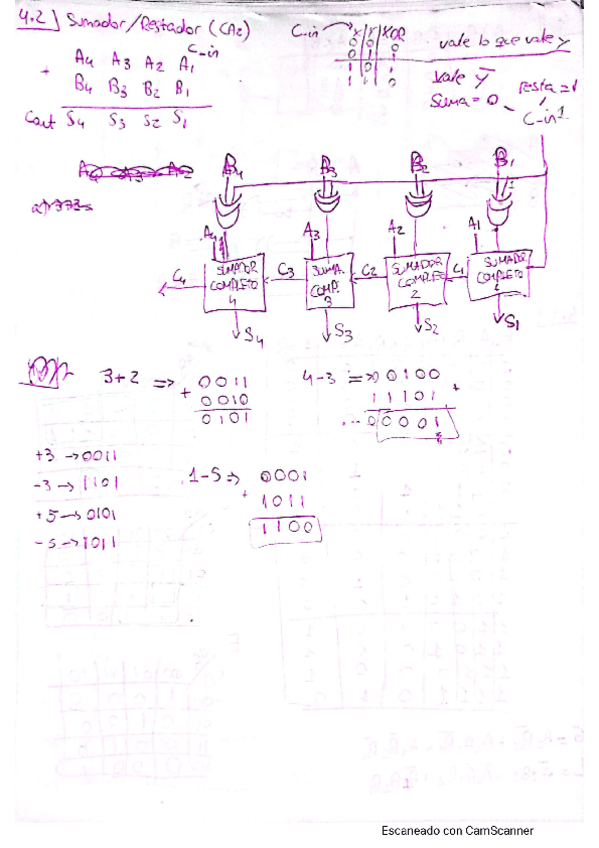 4.2) Sumador/Restador (CA2)
C-in
A4 A3 A2 A1
+ B4 B3 B2 B1
Cout S4 S3 S2 S1
C-in → X Y XOR
0 0 0
0 1 1
1 0 1
1 1 0
vale lo que vale y
vale Y̅
Suma = 0
resta = 1
C-in
B4 B3 B2 B1
A4 A3 A2 A1
C4 SUMADOR COMPLETO 4 C3 SUMA. COMP. 3 C2 SUMADOR COMPLETO 2 C1 SUMADOR COMPLETO
S4 S3 S2 S1
3+2 => 0011
+ 0010
0101
4-3 => 00100
+ 11101
... 00001
+3 → 0011
-3 → 1101
+5 → 0101
-5 → 1011
1-5 => 0001
+ 1011
1100
Escaneado con CamScanner